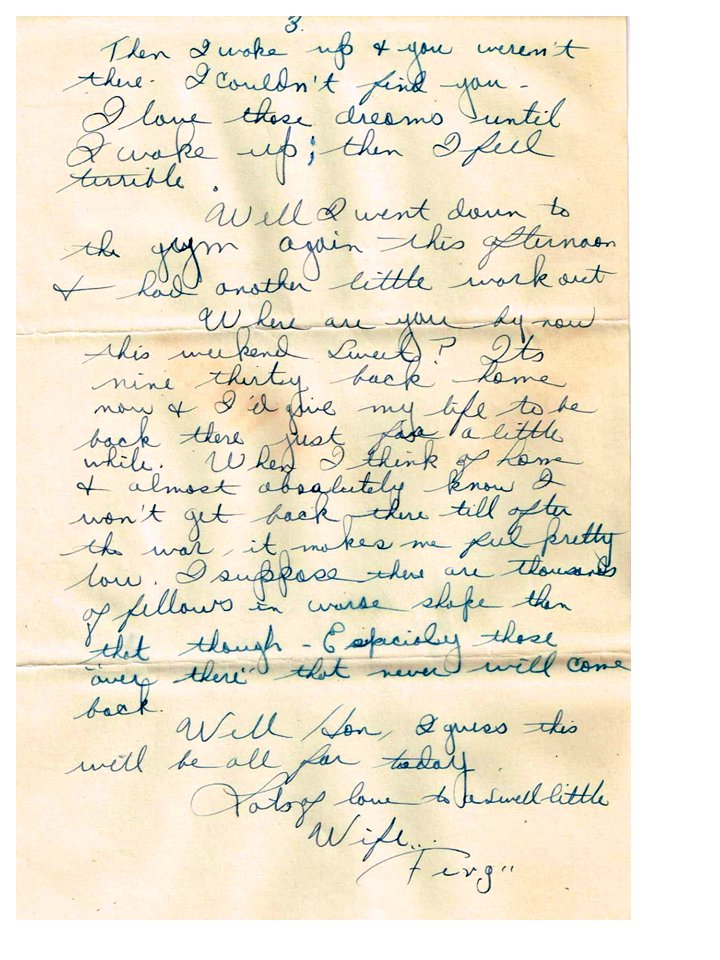 3.
Then I woke up & you weren't
there. I couldn't find you -
I love those dreams until
I woke up; then I feel
terrible.
Well I went down to
the gym again this afternoon
& had another little work out
Where are you by now
this weekend Sweet? Its
nine thirty back home
now & I'd give my life to be
back there just for a little
while. When I think of home
& almost absolutely know I
won't get back there till after
the war, it makes me feel pretty
low. I suppose there are thousands
of fellows in worse shape then
that though - Espacioly those
"over there" that never will come
back.
Well Hon, I guess this
will be all for today
Lots of love to a swell little
Wife...
"Ferg"